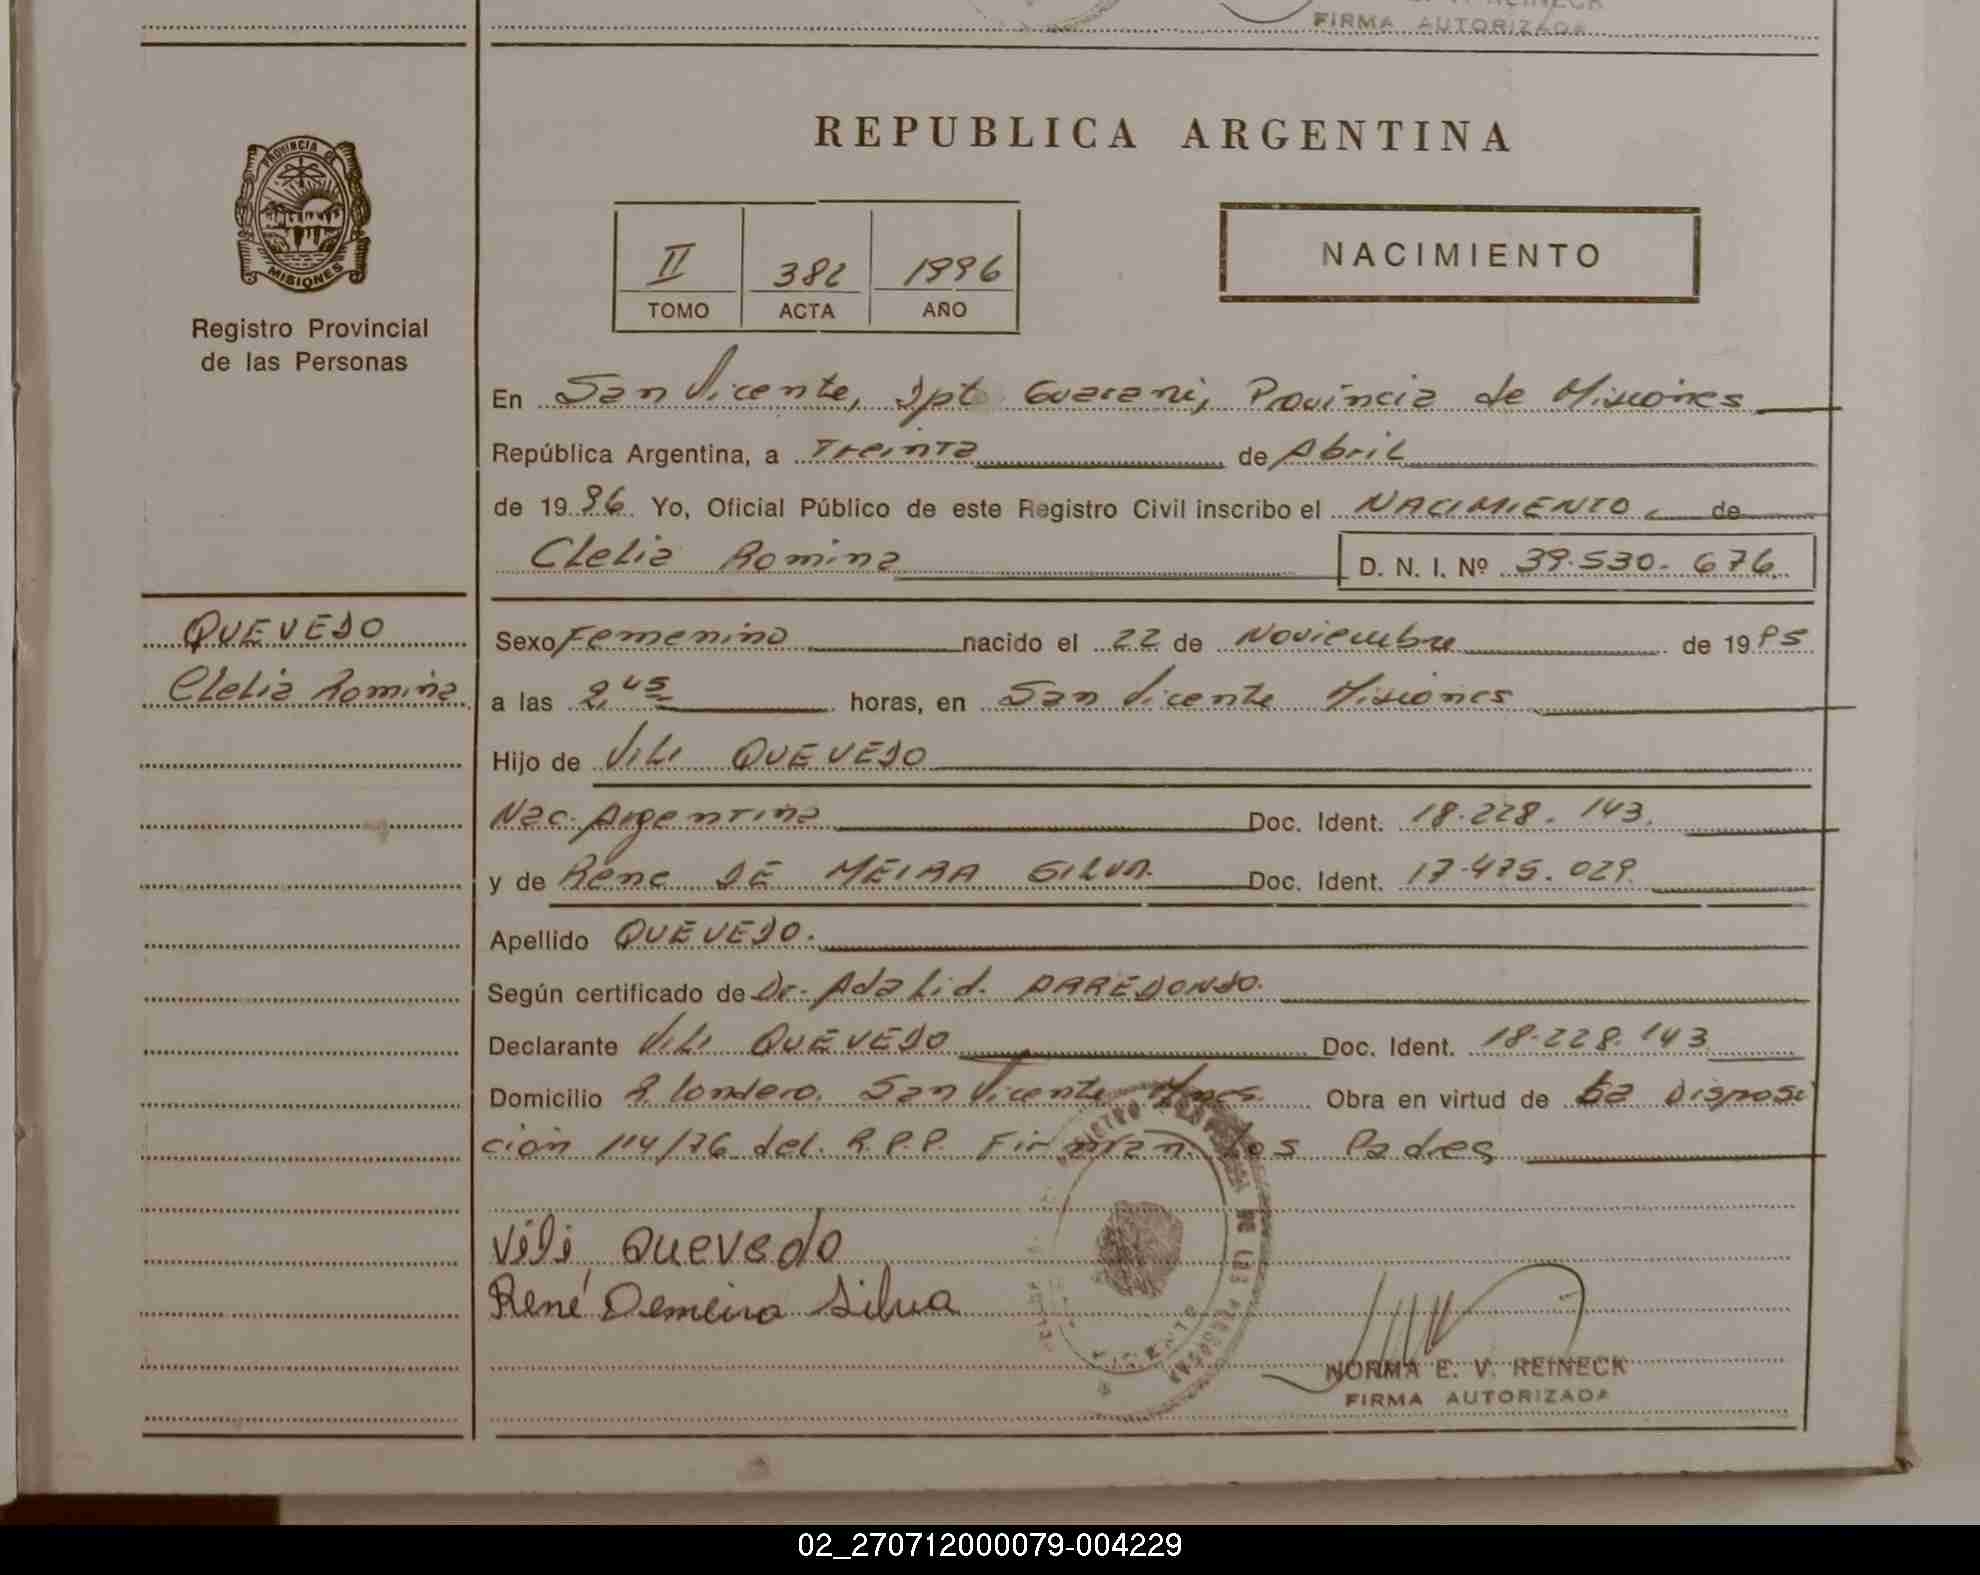 FIRMA AUTORIZADA
PROVINCIA DE
MISIONES
Registro Provincial
de las Personas
REPUBLICA ARGENTINA
II 382 1996
TOMO ACTA AÑO
NACIMIENTO
En San Vicente, Dpto Guarani, Provincia de Misiones
República Argentina, a Treinta de Abril
de 1996. Yo, Oficial Público de este Registro Civil inscribo el NACIMIENTO de
Clelia Romina D. N. I. Nº 39.530.676
QUEVEDO
Clelia Romina
Sexo Femenino nacido el 22 de Noviembre de 1995
a las 2,45 horas, en San Vicente Misiones
Hijo de Vili QUEVEDO
Nac. Argentina Doc. Ident. 18.228.143.
y de Rene DE MEIRA SILVA Doc. Ident. 17.475.029
Apellido QUEVEDO.
Según certificado de Dr. Adalid
Declarante Vili QUEVEDO Doc. Ident. 18.228.143
Domicilio San Vicente Mnes. Obra en virtud de La Disposi
ción 114/76 del R.P.P. Firman los Padres
Vili Quevedo
René Demeira Silva
NORMA E. V. REINECK
FIRMA AUTORIZADA
02_270712000079-004229